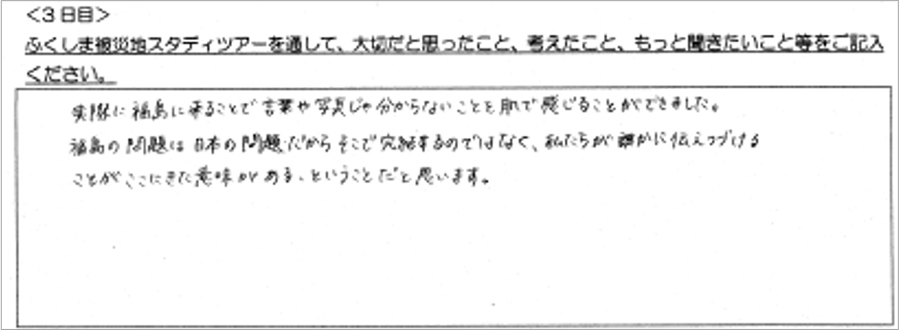 <3日目>
ふくしま被災地スタディツアーを通して、大切だと思ったこと、考えたこと、もっと聞きたいこと等をご記入
ください。
実際に福島に来ることで言葉や写真じゃ分からないことを肌で感じることができました。
福島の問題は日本の問題だからそこで完結するのではなく、私たちが誰かに伝えつづける
ことがここにきた意味がある、ということだと思います。